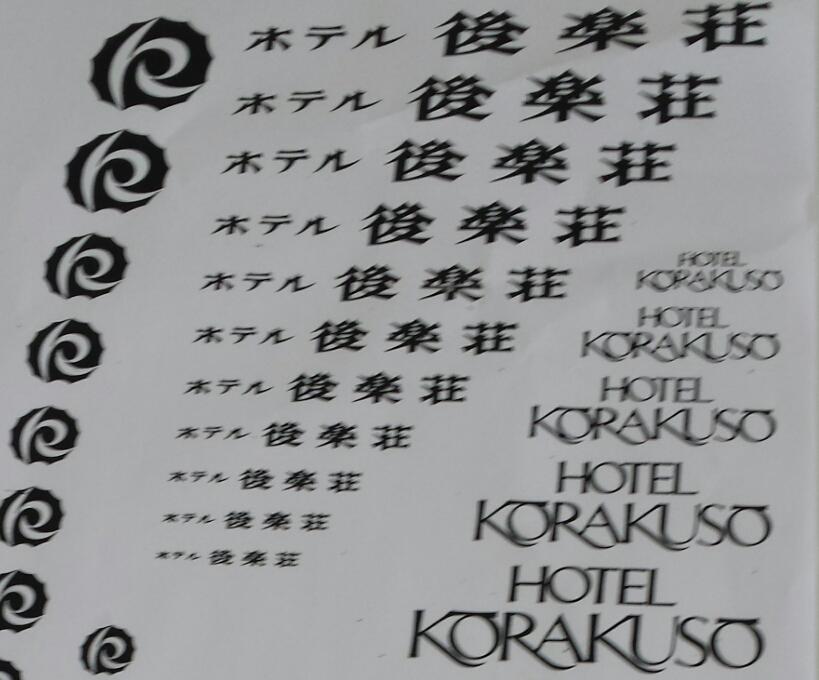 ホテル 後楽荘
ホテル 後楽荘
ホテル 後楽荘
ホテル 後楽荘
HOTEL
KŌRAKUSŌ
ホテル 後楽荘
HOTEL
KŌRAKUSŌ
ホテル 後楽荘
HOTEL
KŌRAKUSŌ
ホテル 後楽荘
ホテル 後楽荘
HOTEL
KŌRAKUSŌ
ホテル 後楽荘
ホテル 後楽荘
ホテル 後楽荘
HOTEL
KŌRAKUSŌ